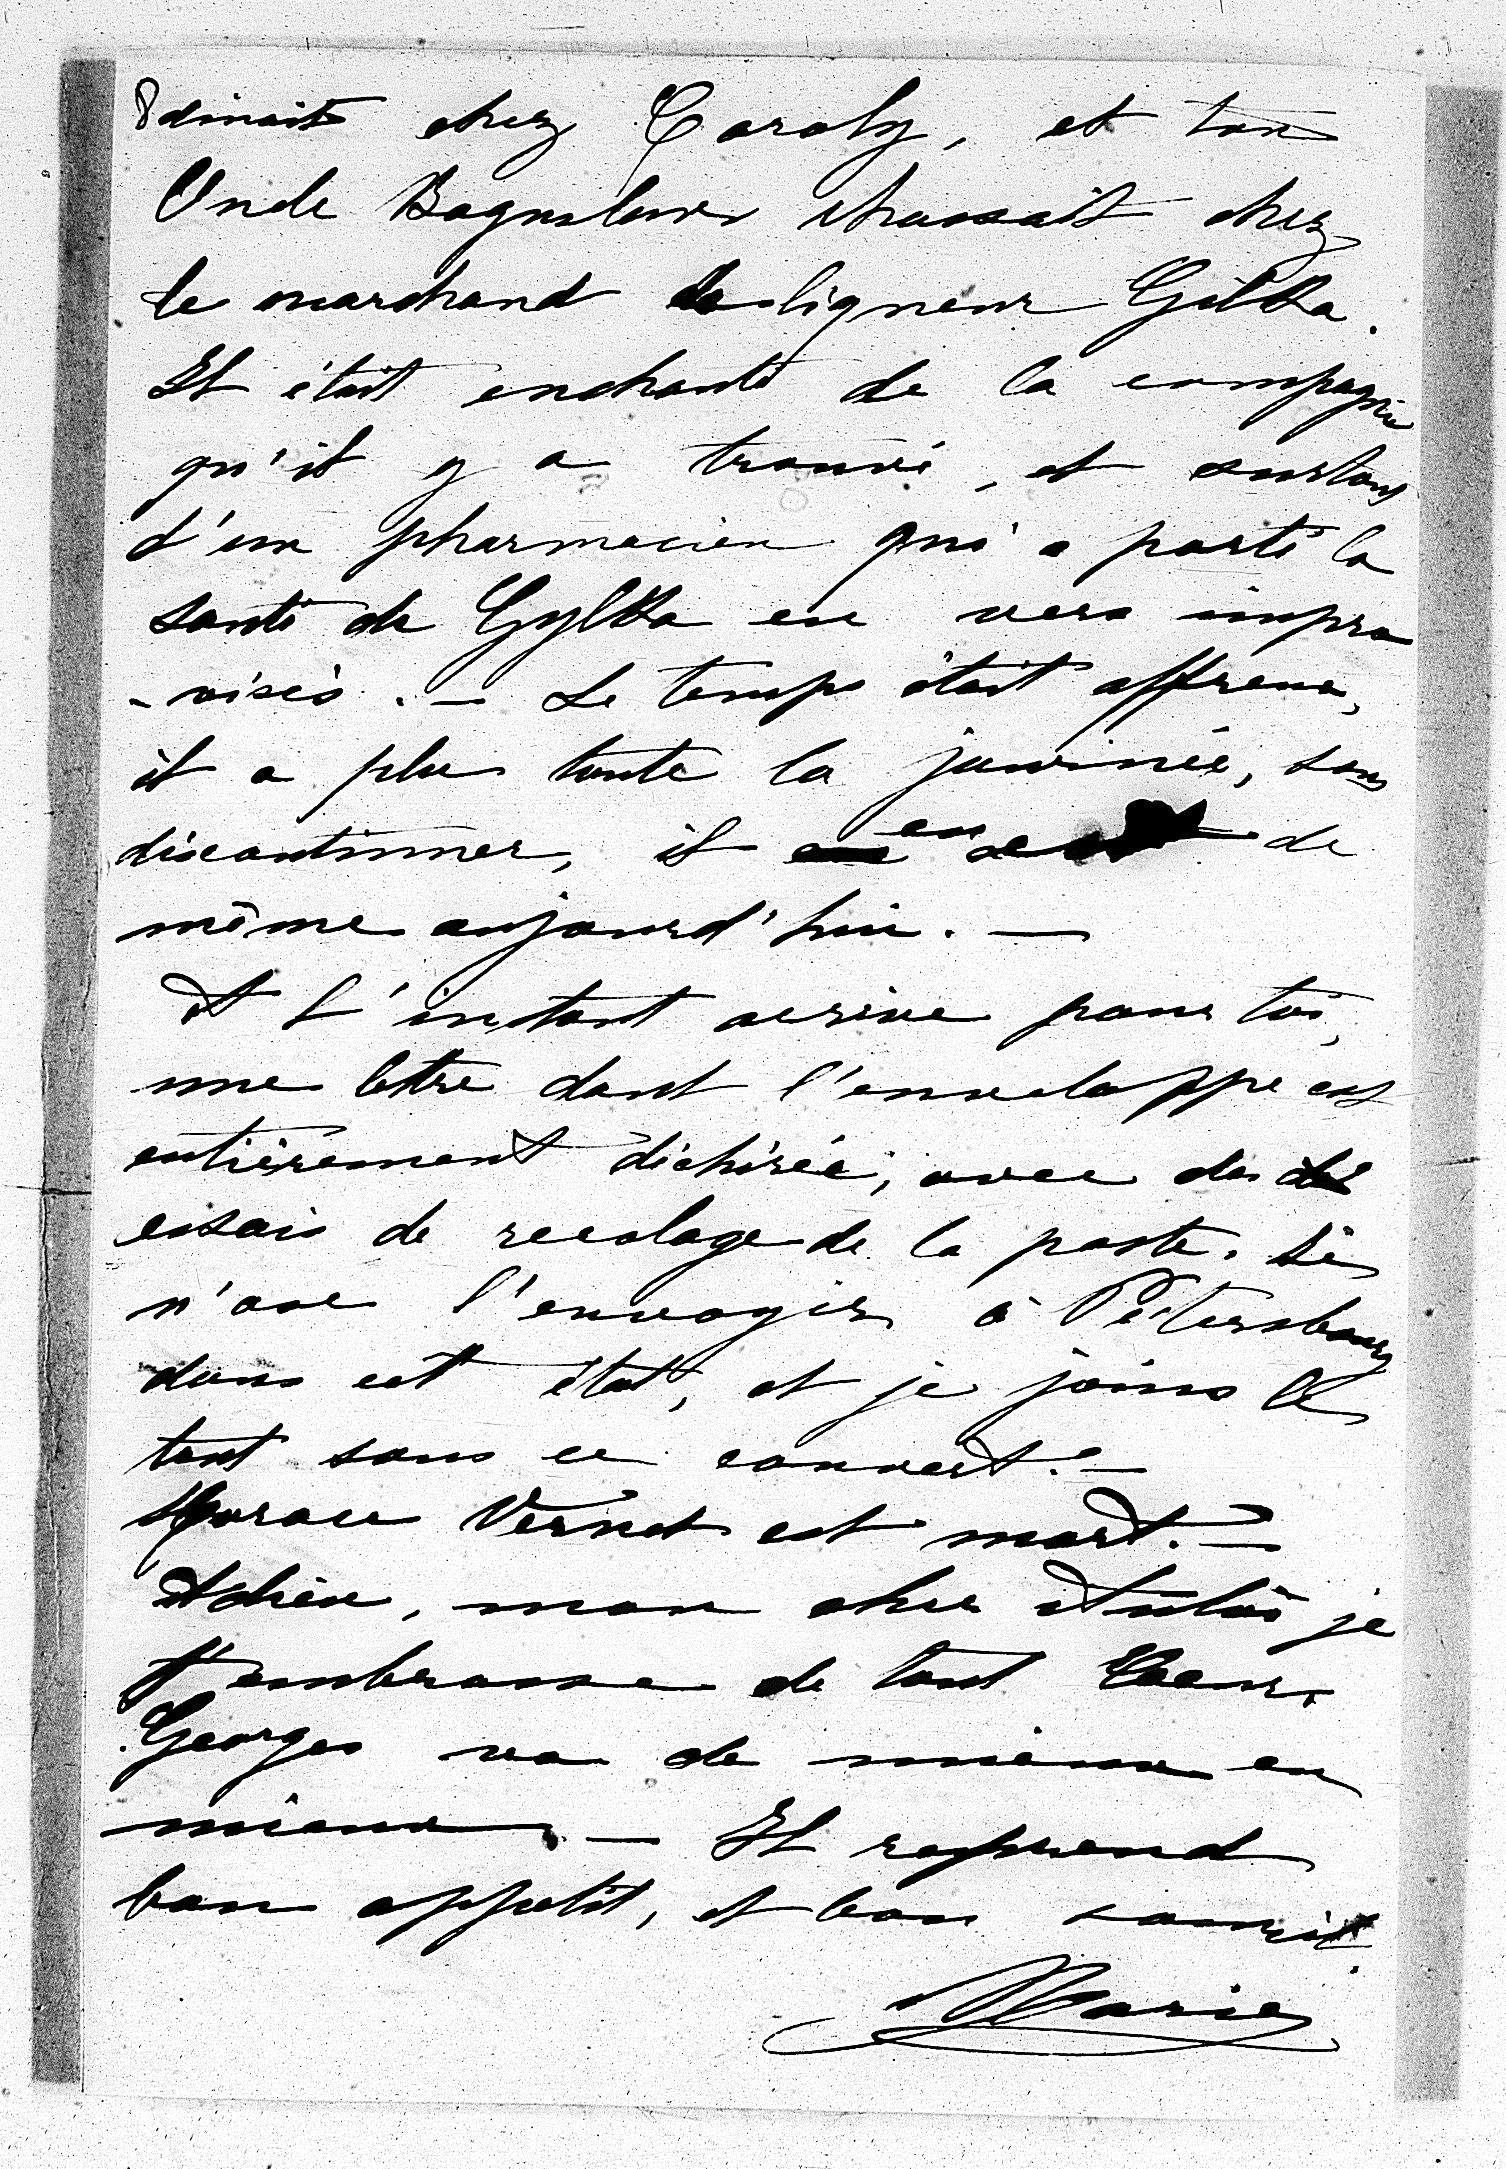 dinait chez Caroly, et ton
Oncle Boguslaw chassait chez
le marchand de ligneur Gilka.
Il était enchanté de la compagnie
qu'il y a trouvé, et surtout
d'un pharmacien qui a porté la
santé de Gylka en vers impro
-visés. — Le temps était affreux,
il a plu toute la journée, sans
discontinuer, il en de
même aujourd'hui. —
A l'instant arrive pour toi,
une lettre dont l'enveloppe est
entièrement déchirée, avec des
essais de recolage de la poste. Je
n'ose l'envoyer à Pétersbourg
dans cet état, et je joins le
tout sous ce couvert. —
Horace Vernet est mort. —
Adieu, mon cher Antoi je
t'embrasse de tout Coeur.
Georges va de mieux en
mieux. — Il reprend
bon appetit, et bon
Marie